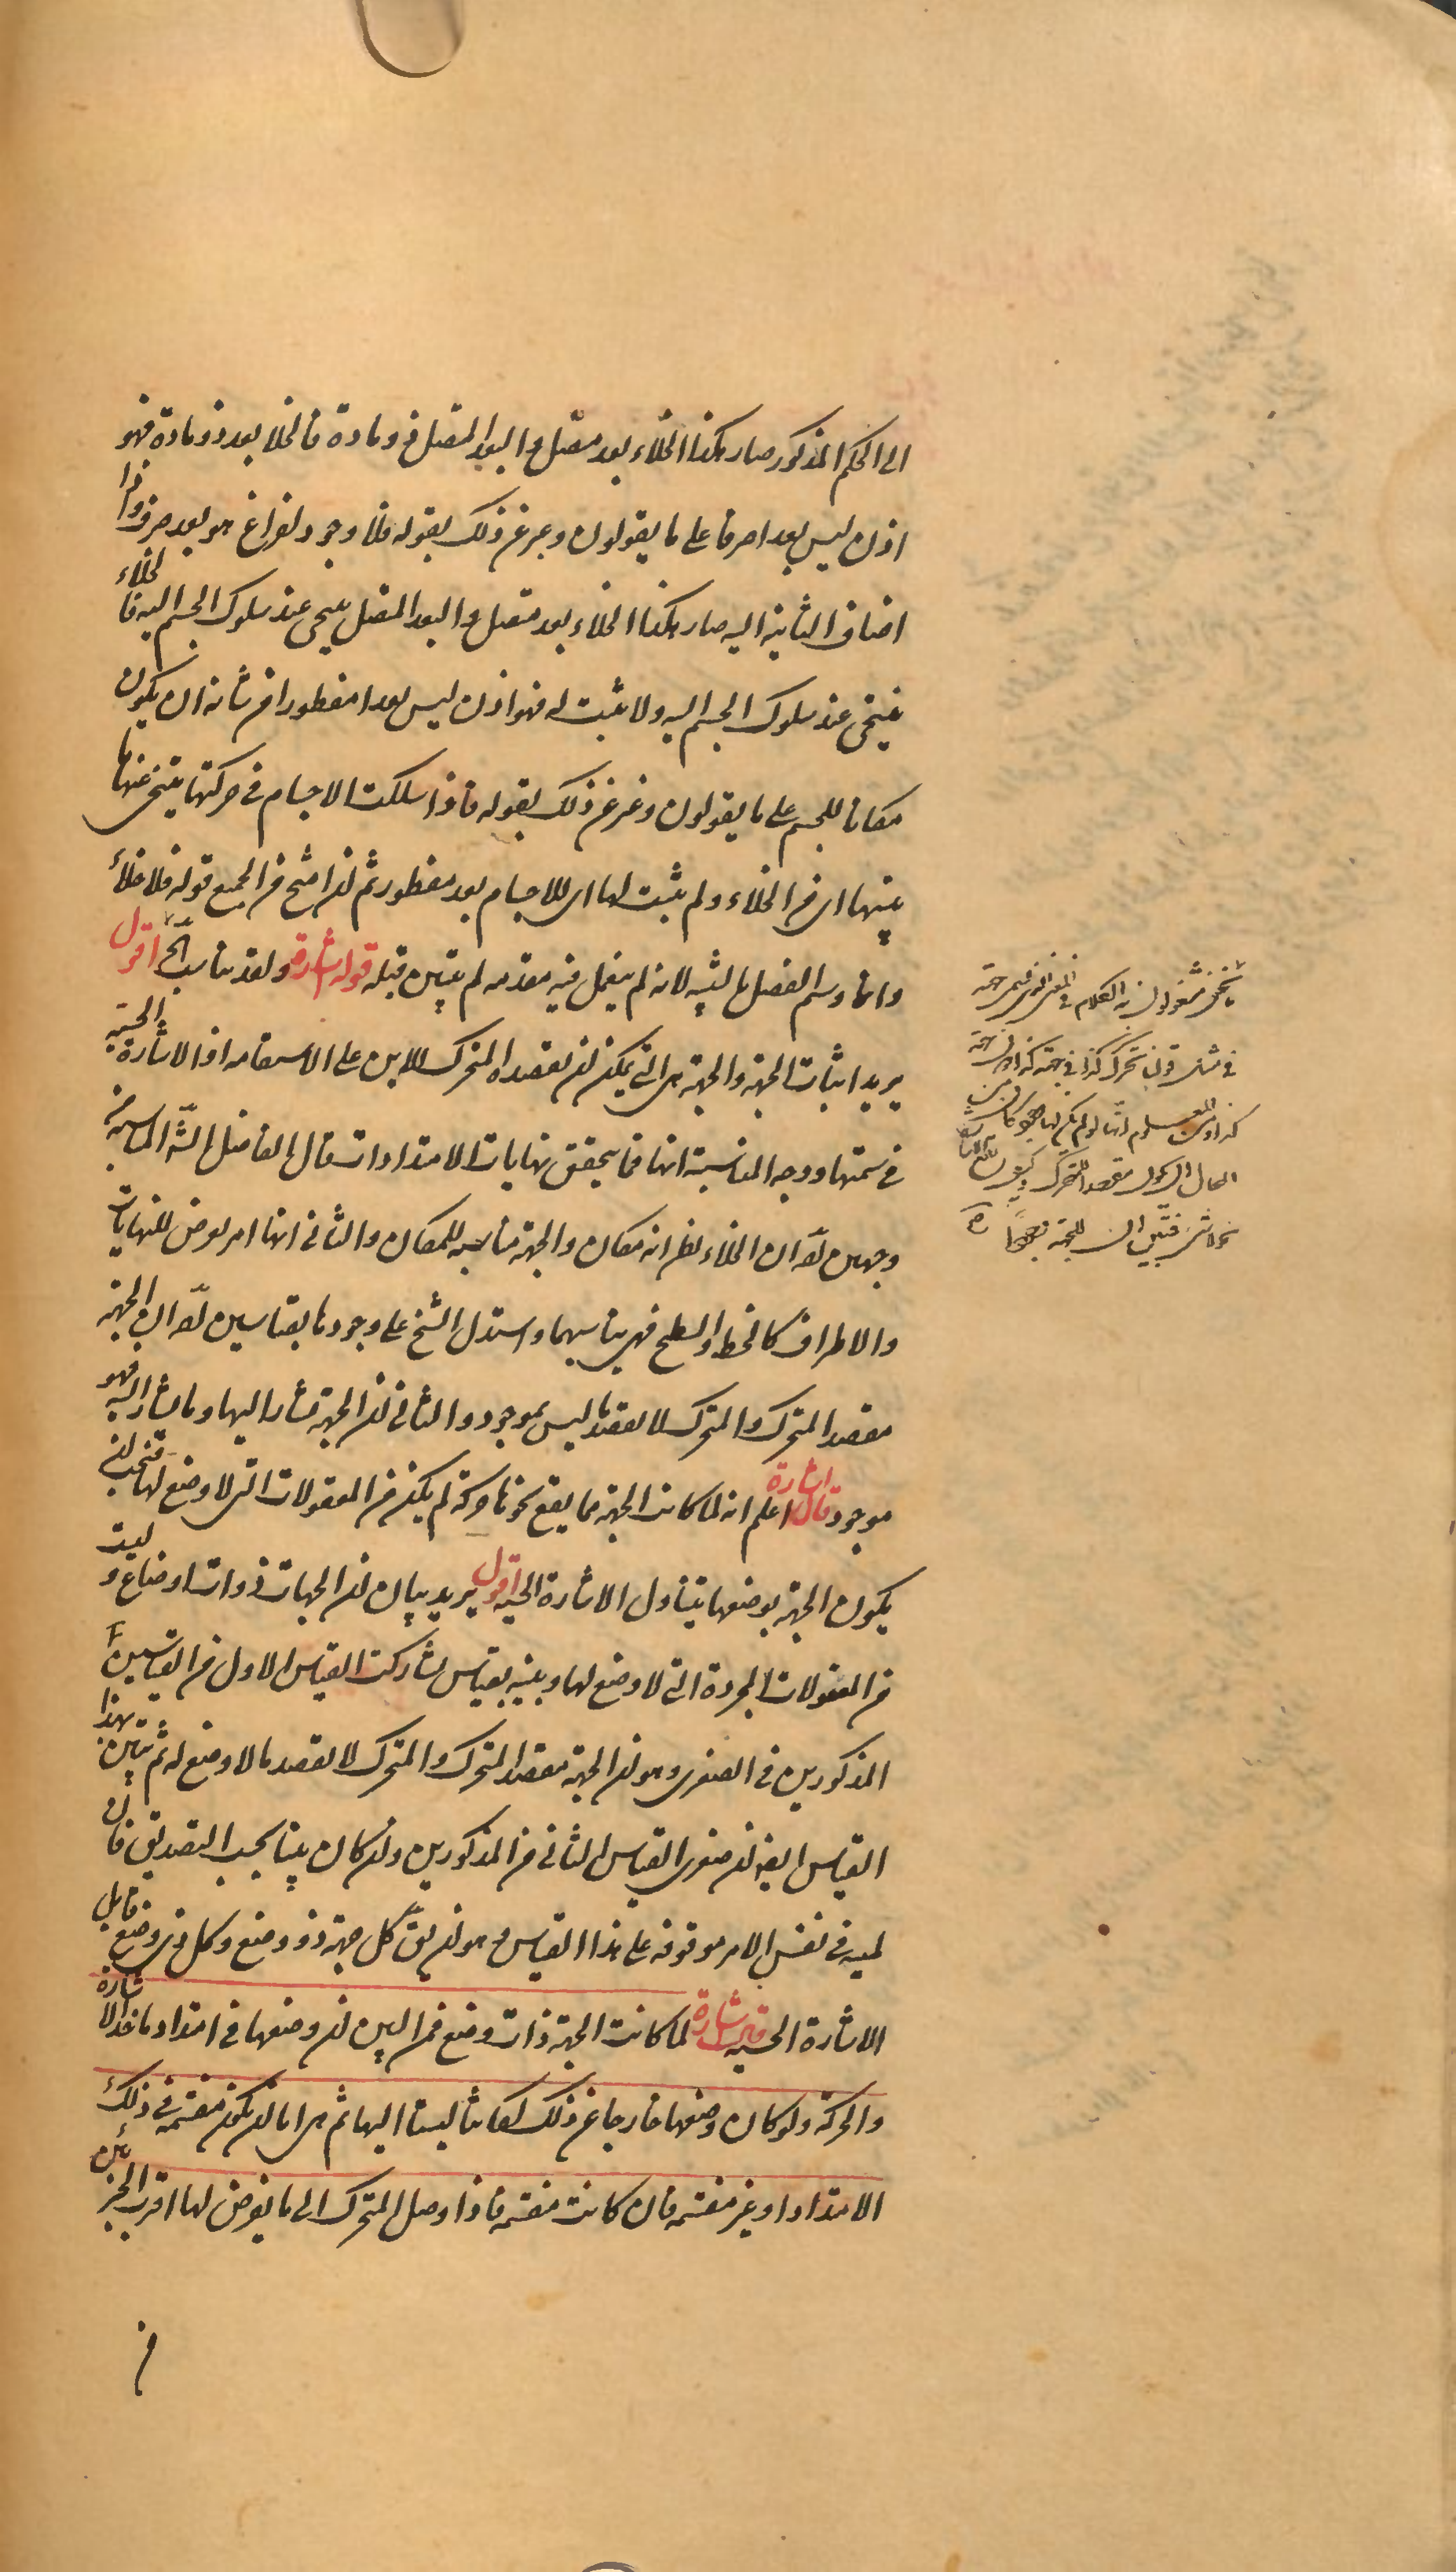 الى الحكم المذكور صار هكذا الخلاء بعد متصل والبعد المتصل ذو مادة فالخلا بعد ذو مادة فهو
اذن ليس بعدا صرفا على ما يقولون وعبر عن ذلك بقوله فلا وجود لفراغ هو بعد صرف واذا
اضاف الثانية اليه صار هكذا الخلاء بعد متصل والبعد المتصل يتنحى عند سلوك الجسم اليه فالخلاء
يتنحى عند سلوك الجسم اليه ولا يثبت له فهو اذن ليس بعدا مفطورا من شانه ان يكون
مكانا للجسم على ما يقولون وعبر عن ذلك بقوله فاذا سلكت الاجسام فى حركتها يتنحى عنها ما
بينها اى من الخلاء ولم يثبت لها اى للاجسام بعد مفطور ثم انتج من الجميع قوله فلا خلاء
وانما وسم الفصل بالتنبيه لانه لم يستعمل فيه مقدمه لم يتبين قبله قوله اشارة ولقد يناسب الخ اقول
يريد اثبات الجهة والجهة هى التى يمكن ان يقصده المتحرك للاين على الاستقامه او الاشارة الحسية
فى سمتها ووجه المناسبة انها مما يتحقق نهايات الامتدادات قال الفاضل الش المناسبة من
وجهين آ ان الخلاء يظن انه مكان والجهة مناسبه للمكان والثانى انها امر يعرض للنهايات
والاطراف كالخط والسطح فهى يناسبهما واستدل الشيخ على وجودها بقياسين آ ان الجهة
مقصد المتحرك والمتحرك لا يقصد ما ليس بموجود والثانى ان الجهة مشار اليها وما يشار اليه فهو
موجود قال اشارة اعلم انه لما كانت الجهة مما يقع نحوها حركة لم يكن من المعقولات التى لا وضع لها فيجب ان
يكون الجهة بوضعها يتناول الاشارة الحسية اقول يريد بيان ان الجهات ذوات اوضاع وليست
من المعقولات المجردة التى لا وضع لها وبينه بقياس يشارك القياس الاول من القياسين
المذكورين فى الصغرى وهو ان الجهة مقصد المتحرك والمتحرك لا يقصد ما لا وضع له ثم تبين بهذا
القياس ايضا ان صغرى القياس الثانى من المذكورين وان كان بينا بحسب التصديق فان
لميه فى نفس الامر موقوفه على هذا القياس وهو ان يق كل جهة ذو وضع وكل ذى وضع قابل
الاشارة الحسيه قال اشارة لما كانت الجهة ذات وضع فمن البين ان وضعها فى امتداد ماخذ الاشارة
والحركة ولو كان وضعها خارجا عن ذلك لكانتا ليستا اليها ثم هى اما ان يكون منقسمة فى ذلك
الامتداد او غير منقسمه فان كانت منقسمه فاذا وصل المتحرك الى ما يفرض لها اقرب الجزئين
من